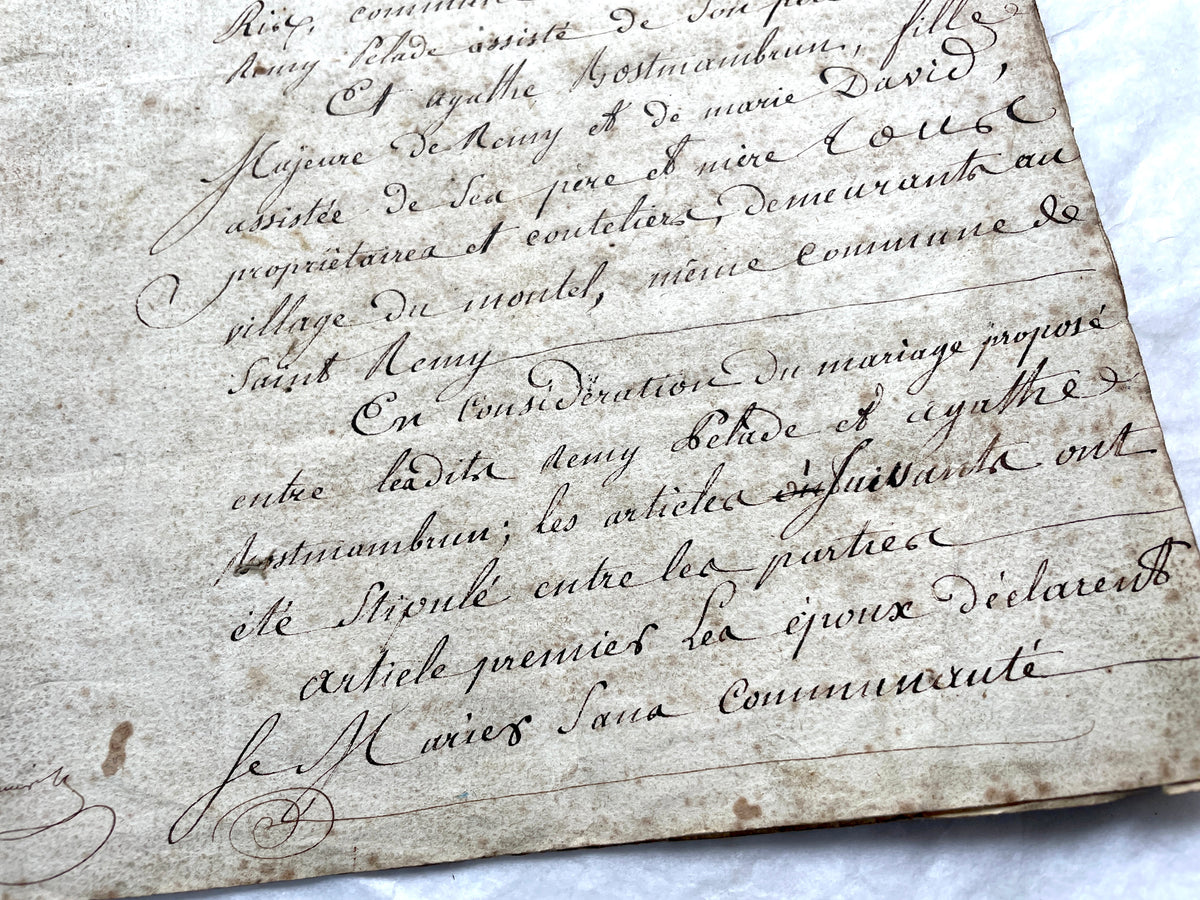 Rix, commune
Remy Pelade assisté de Son père
Et agathe Rostmambrun, fille
Majeure de Remy et de marie David,
assistée de Ses père et mère tous
propriétaires et couteliers, demeurants au
village du montel, même commune de
Saint Remy
En Considération du mariage proposé
entre lesdits Remy Pelade et agathe
Rostmambrun; les articles Suivants ont
été Stipulé entre les parties
article premier Les époux déclarent
se Marier Sans Communauté